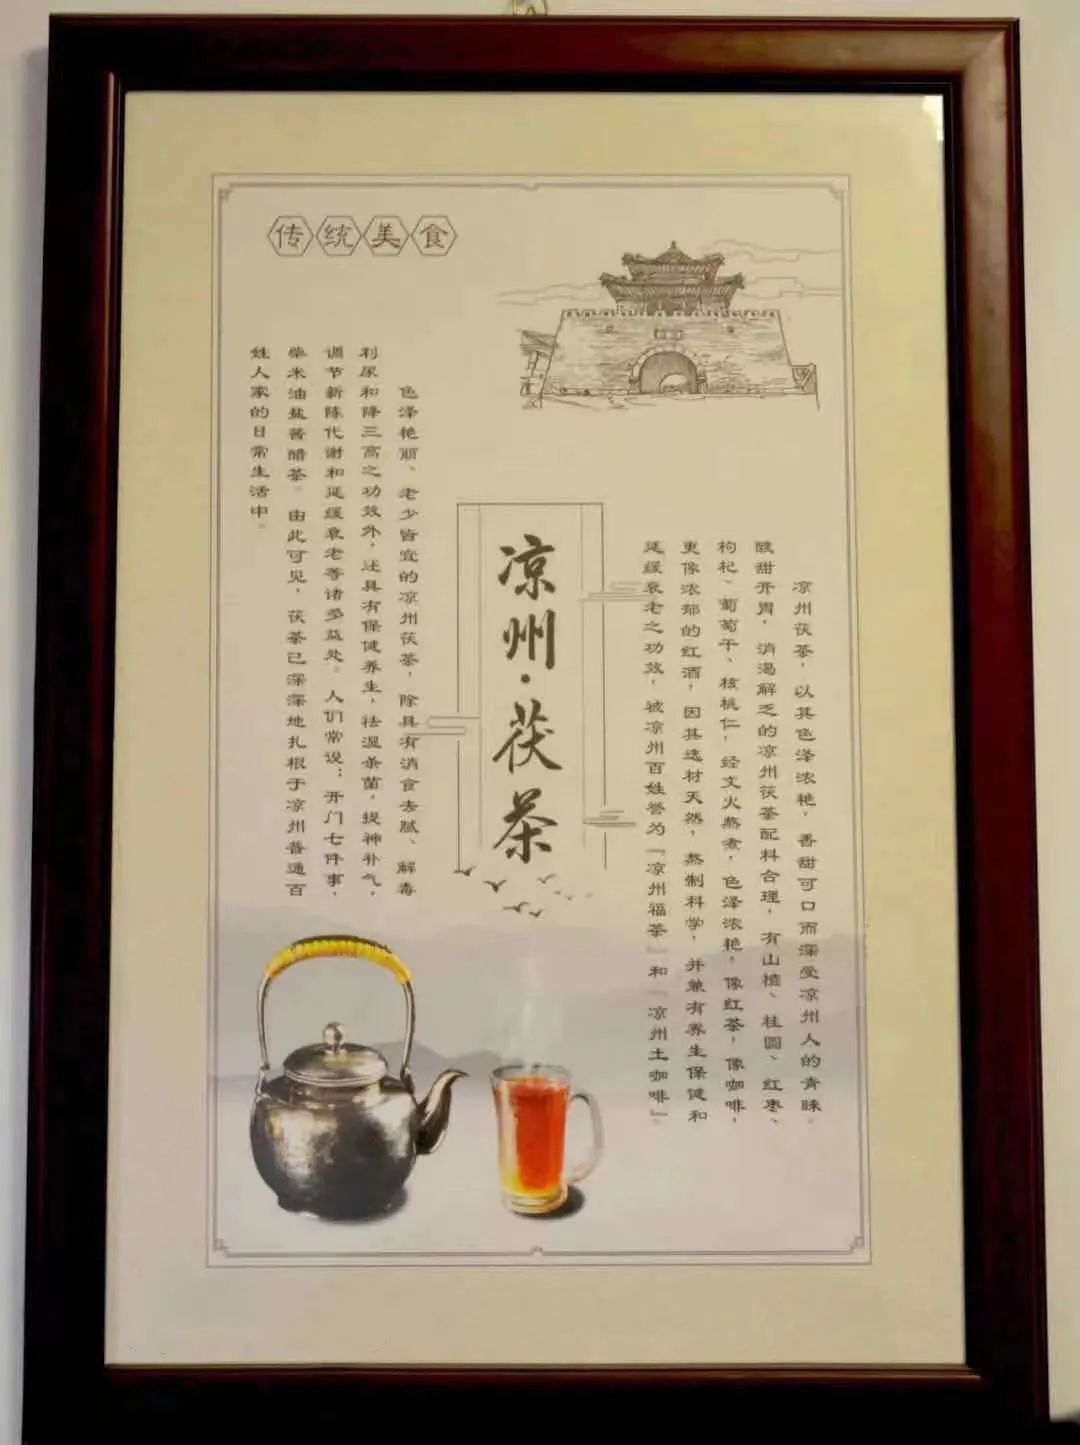 传统美食
凉州·茯茶
凉州茯茶，以其色泽浓艳，香甜可口而深受凉州人的青睐。
酸甜开胃，消渴解乏的凉州茯茶配料合理，有山楂、桂圆、红枣、
枸杞、葡萄干、核桃仁，经文火蒸煮，色泽浓艳，像红茶，像咖啡，
更像浓郁的红酒，因其选材天然，蒸制科学，并兼有养生保健和
延缓衰老之功效，被凉州百姓誉为「凉州福茶」和「凉州土咖啡」。
色泽艳丽、老少皆宜的凉州茯茶，除具有消食去腻、解毒
利尿和降三高之功效外，还具有保健养生，祛湿杀菌，提神补气，
调节新陈代谢和延缓衰老等诸多益处。人们常说：开门七件事，
柴米油盐酱醋茶。由此可见，茯茶已深深地扎根于凉州普通百
姓人家的日常生活中。